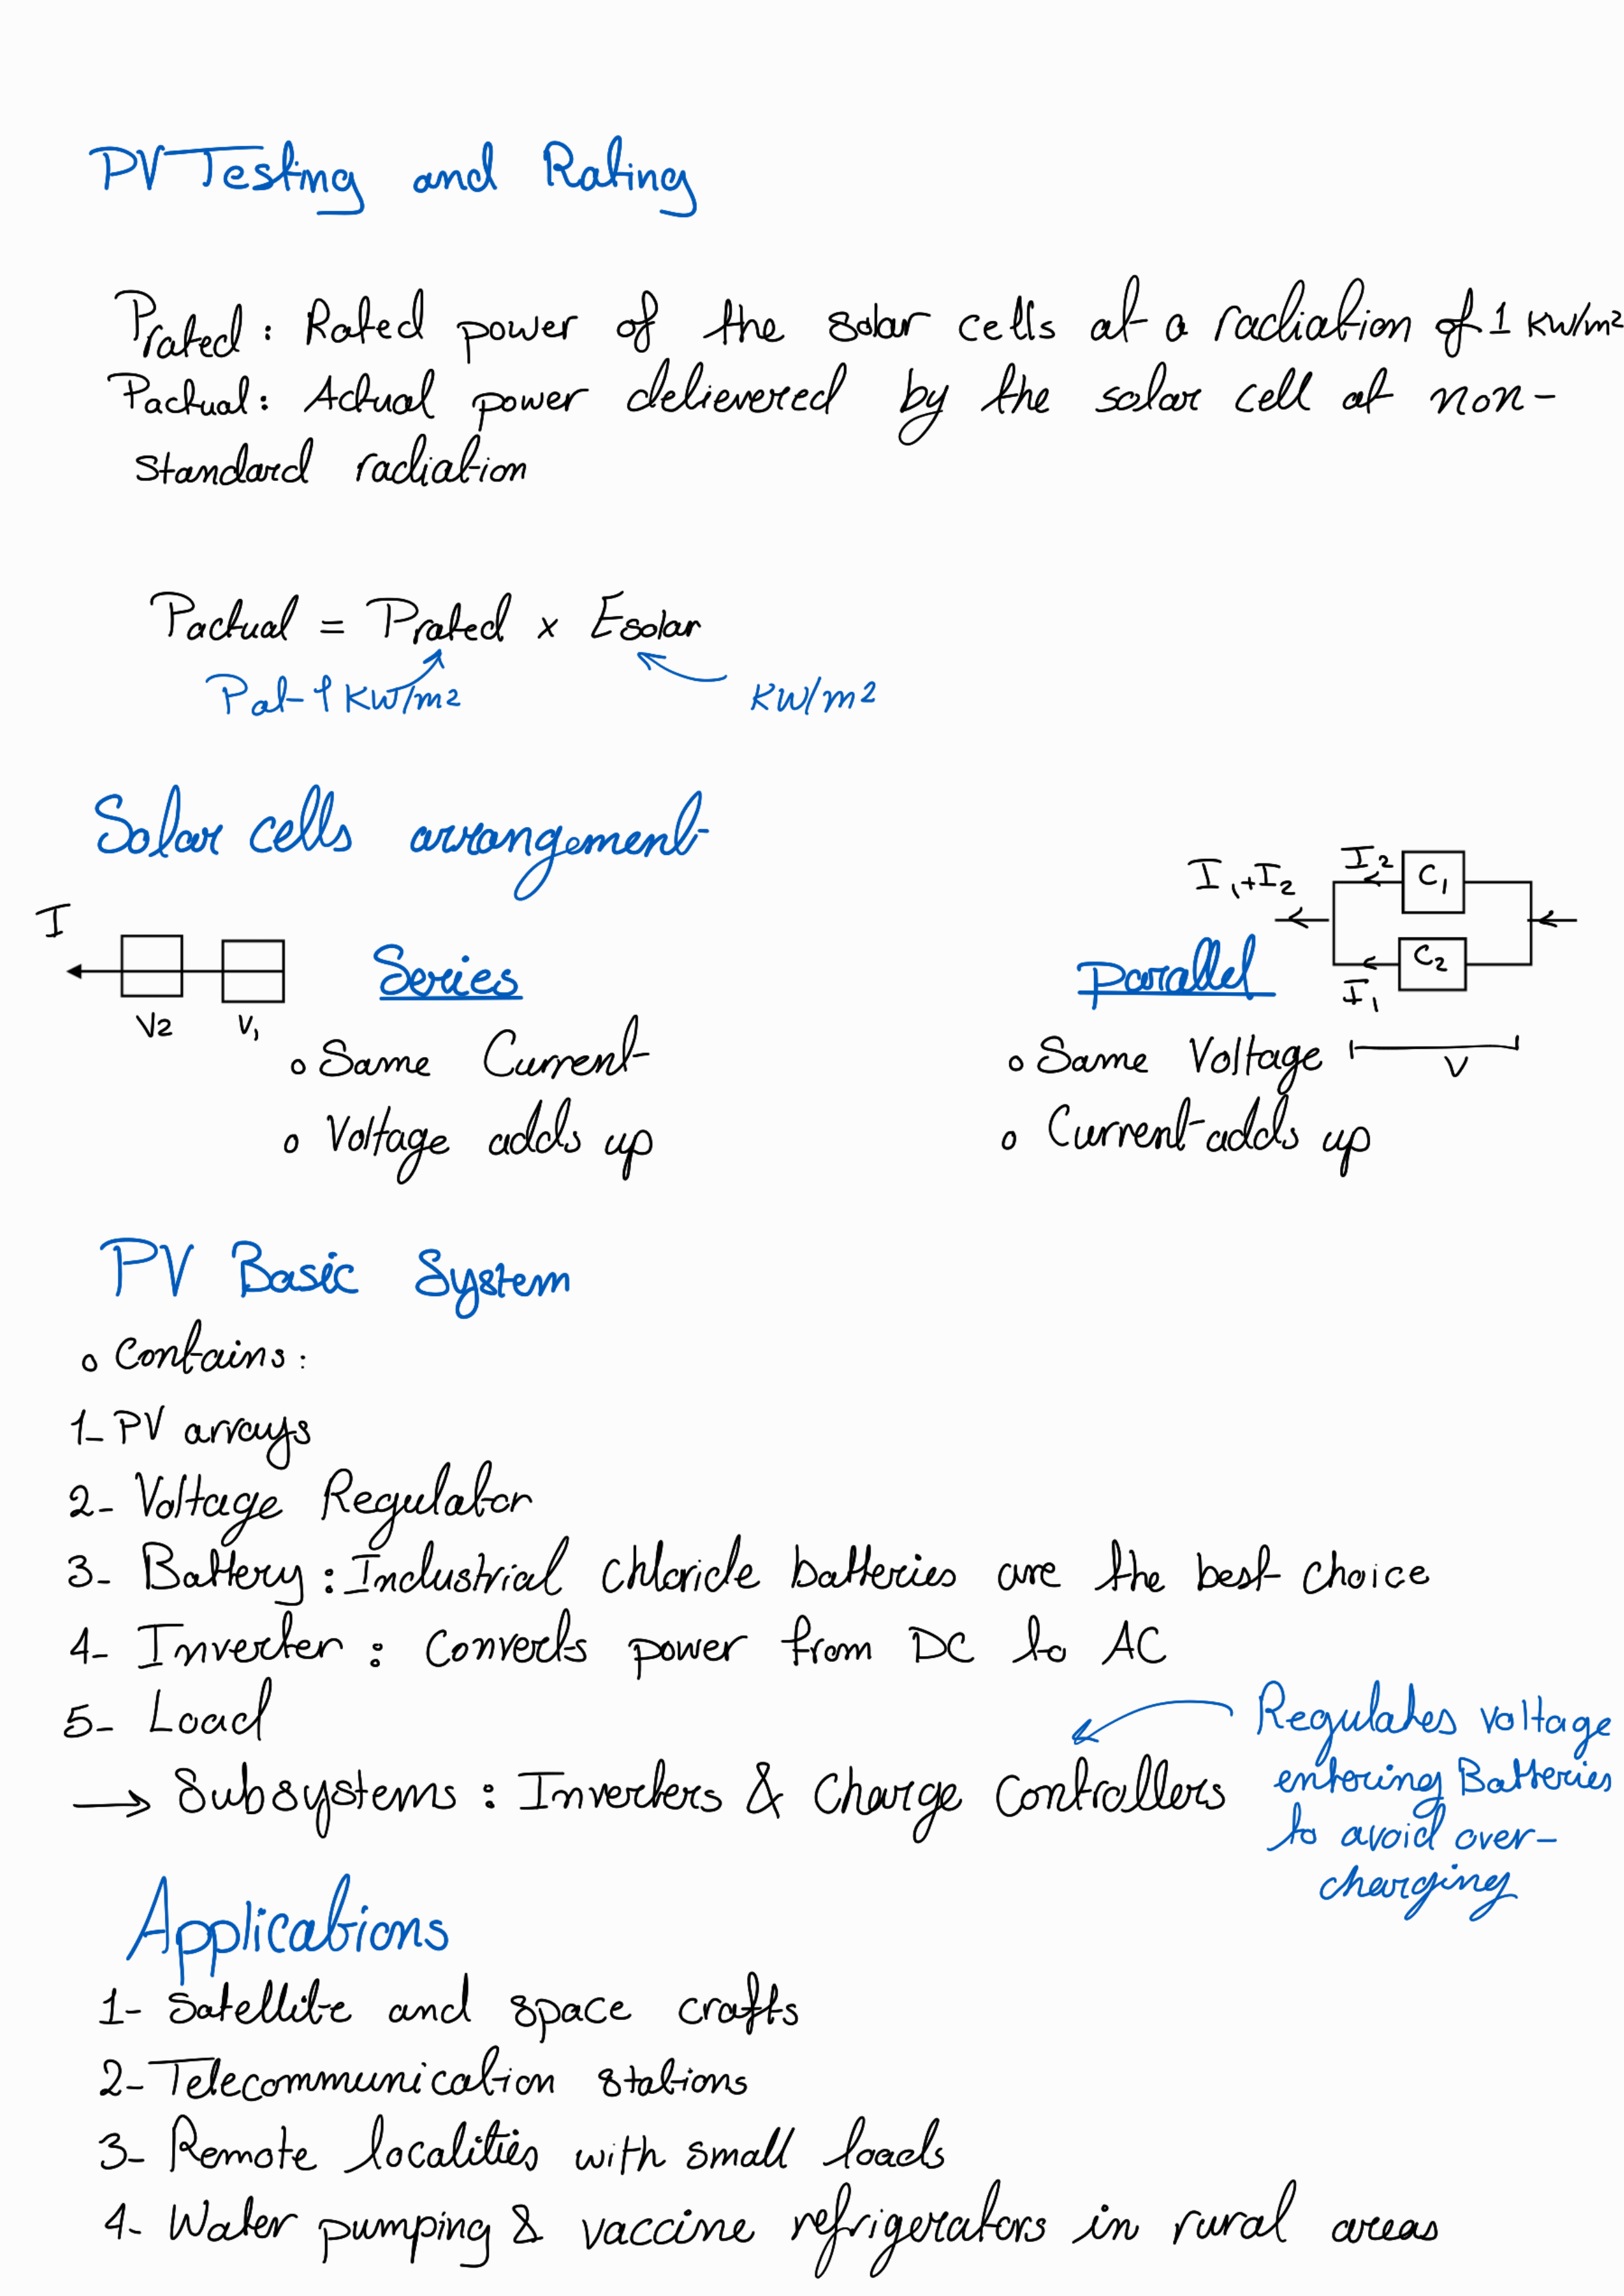 PV Testing and Rating
Prated: Rated power of the solar cells at a radiation of 1 KW/m²
Pactual: Actual power delievered by the solar cell at non-
standard radiation
Pactual = Prated × Esolar
Pat 1 KW/m² KW/m²
Solar cells arrangement
I
V2 V1
Series
• Same Current
• Voltage adds up
I1+I2
I2
C1
C2
I1
V
Parallel
• Same Voltage
• Current adds up
PV Basic System
• Contains:
1- PV arrays
2- Voltage Regulator
3- Battery: Industrial chloride batteries are the best choice
4- Inverter: Converts power from DC to AC
5- Load
→ Subsystems: Inverters & Charge Controllers
Regulates voltage
entering Batteries
to avoid over-
charging
Applications
1- Satellite and space crafts
2- Telecommunication stations
3- Remote localities with small loads
4- Water pumping & vaccine refrigerators in rural areas